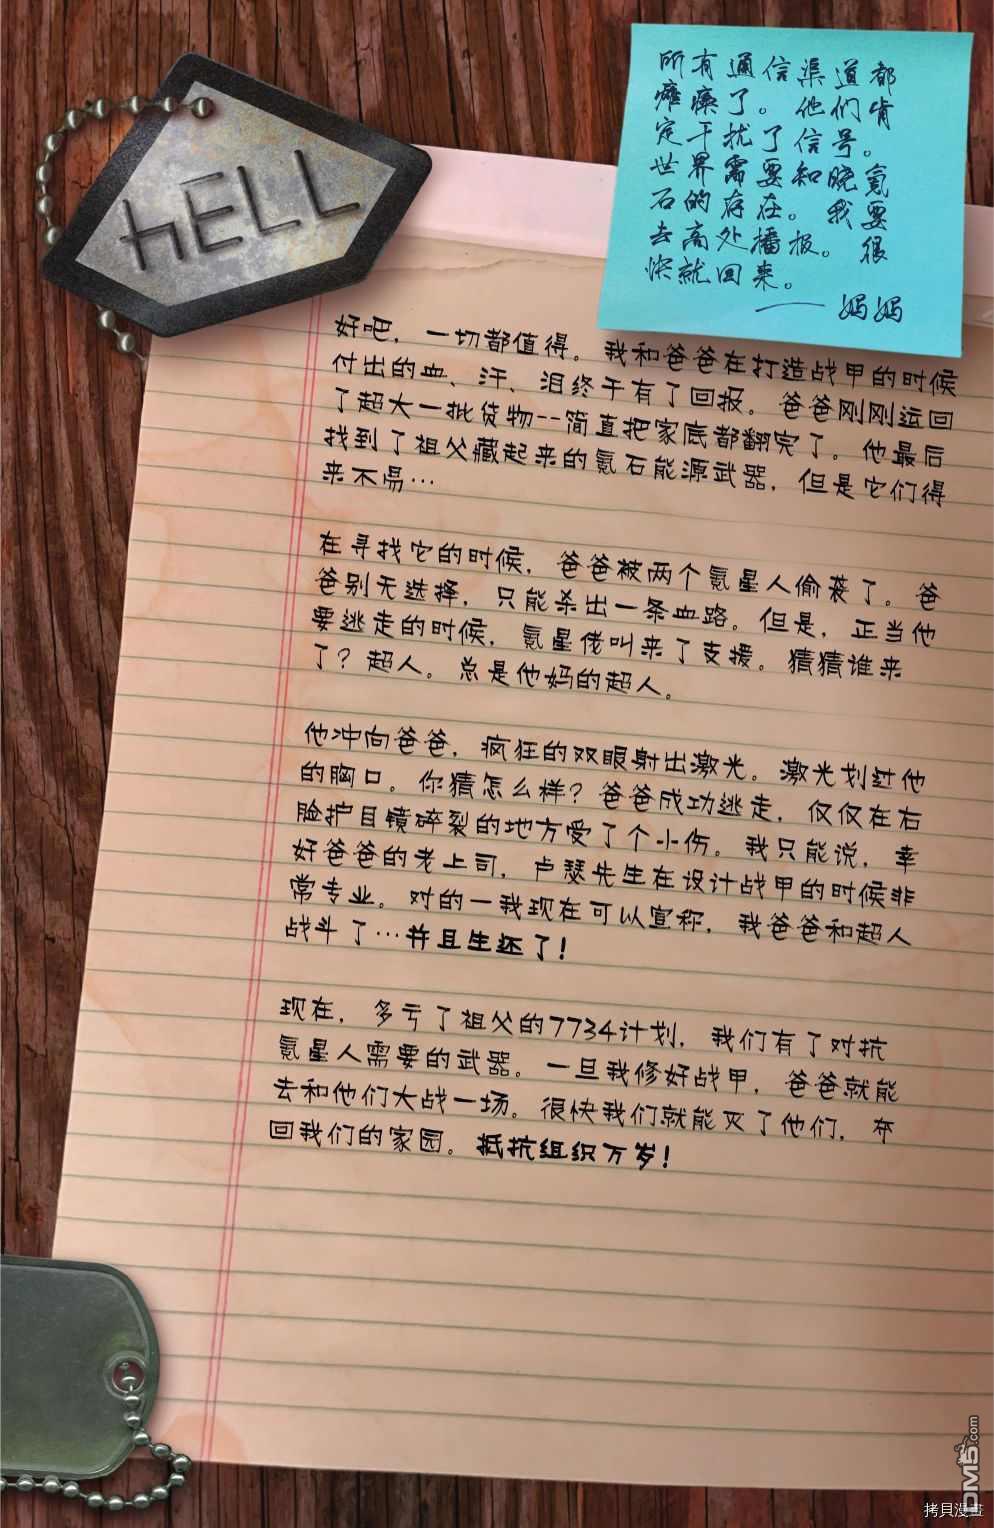 HELL
所有通信渠道都
瘫痪了。他们肯
定干扰了信号。
世界需要知晓氪
石的存在。我要
去高处播报。很
快就回来。
——妈妈
好吧，一切都值得。我和爸爸在打造战甲的时候
付出的血、汗、泪终于有了回报。爸爸刚刚运回
了超大一批货物--简直把家底都翻完了。他最后
找到了祖父藏起来的氪石能源武器，但是它们得
来不易…
在寻找它的时候，爸爸被两个氪星人偷袭了。爸
爸别无选择，只能杀出一条血路。但是，正当他
要逃走的时候，氪星佬叫来了支援。猜猜谁来
了？超人。总是他妈的超人。
他冲向爸爸，疯狂的双眼射出激光。激光划过他
的胸口。你猜怎么样？爸爸成功逃走，仅仅在右
脸护目镜碎裂的地方受了个小伤。我只能说，幸
好爸爸的老上司，卢瑟先生在设计战甲的时候非
常专业。对的一我现在可以宣称，我爸爸和超人
战斗了…并且生还了！
现在，多亏了祖父的7734计划，我们有了对抗
氪星人需要的武器。一旦我修好战甲，爸爸就能
去和他们大战一场。很快我们就能灭了他们，夺
回我们的家园。抵抗组织万岁！
DM5.com
拷貝漫畫